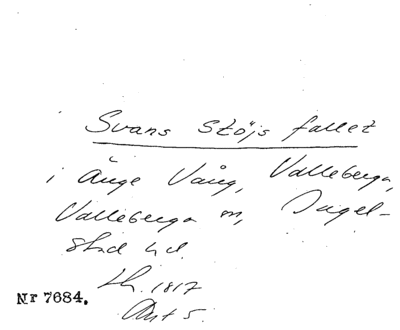 Svans Stöjs fallet
i Änge Vång, Valleberga,
Valleberga sn, Ingel-
stad hd.
Lh. 1817
Akt 5.
Nr 7684.